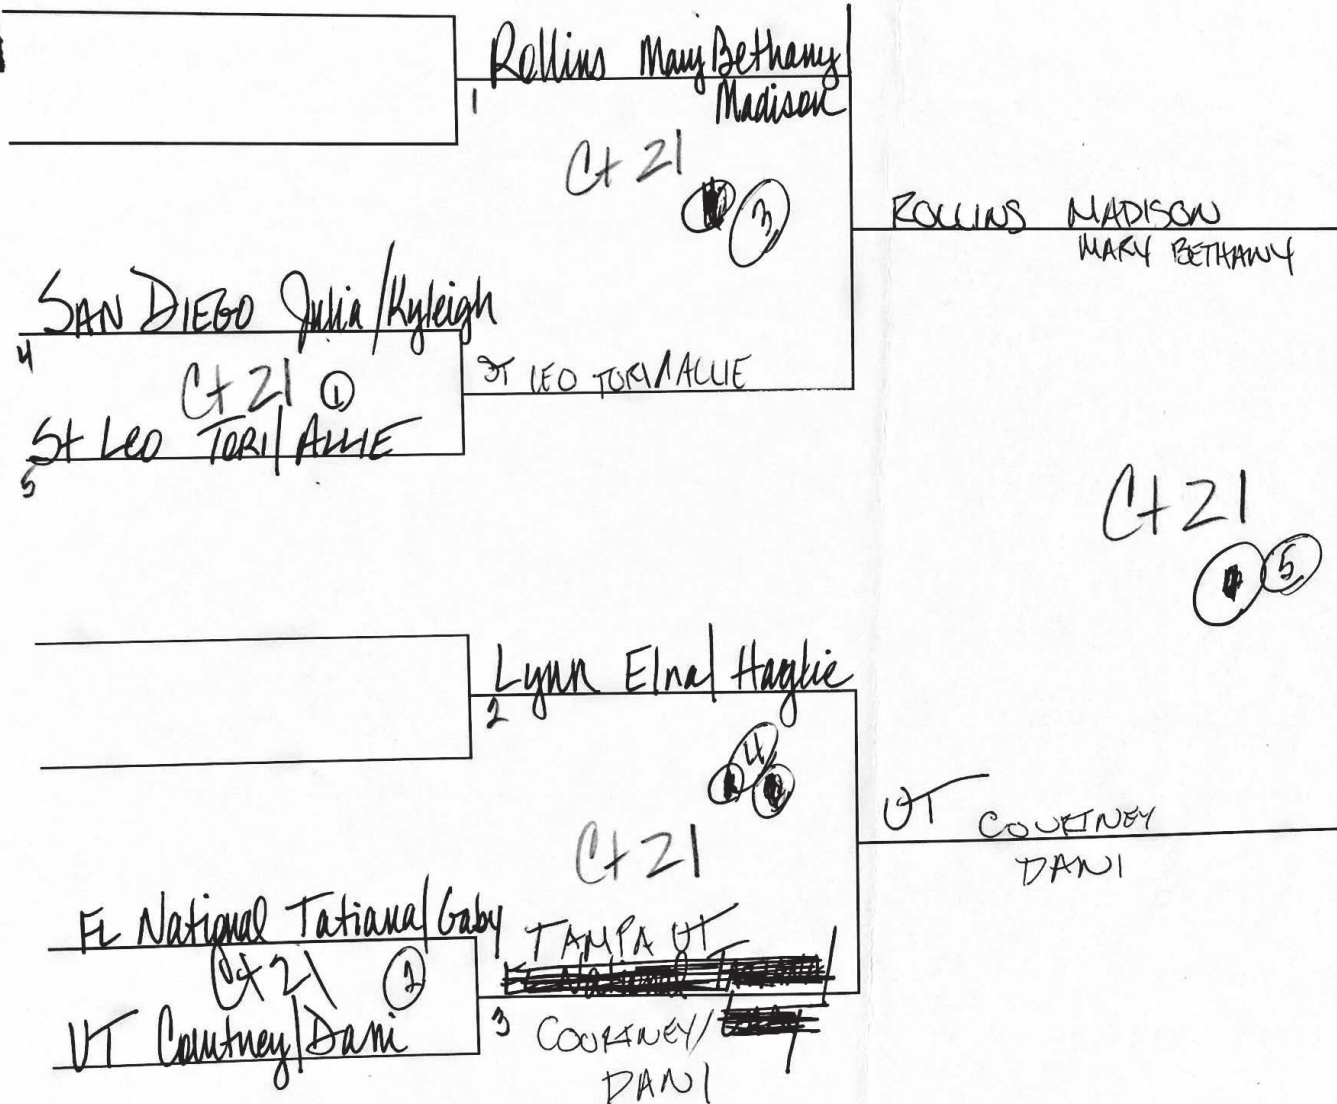 Rollins Mary Bethany
1
Madison
Ct 21
3
ROLLINS MADISON
MARY BETHANY
SAN DIEGO Julia/Kyleigh
4
Ct 21 1
ST LEO TORI/ALLIE
St Leo TORI/ALLIE
5
Ct 21
5
Lynn Elna/Haylie
2
4
Ct 21
UT COURTNEY
DANI
FL National Tatiana/Gaby
Ct 21 2
TAMPA UT
UT Courtney/Dani
3
COURTNEY/
DANI